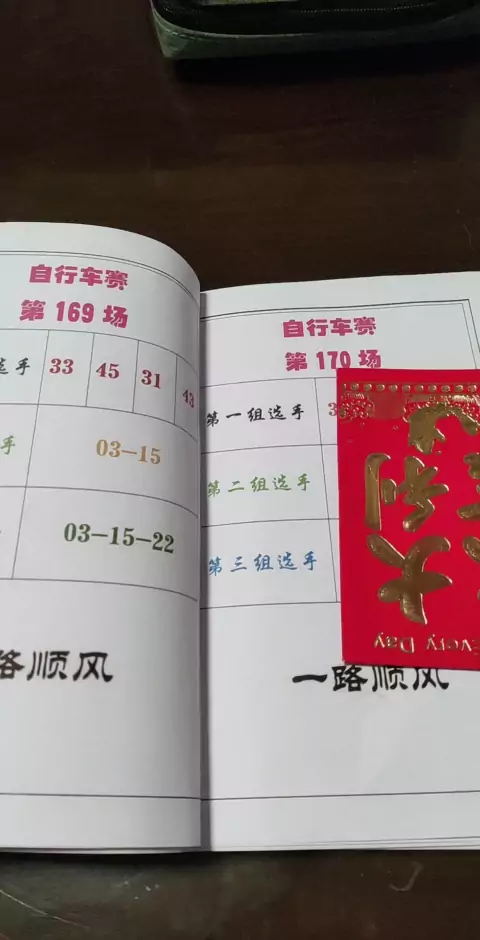 自行车赛
第 169 场
选手 33 45 31 43
手 03-15
03-15-22
路顺风
自行车赛
第 170 场
第一组选手 3
第二组选手
第三组选手
一路顺风
大利
Every Day